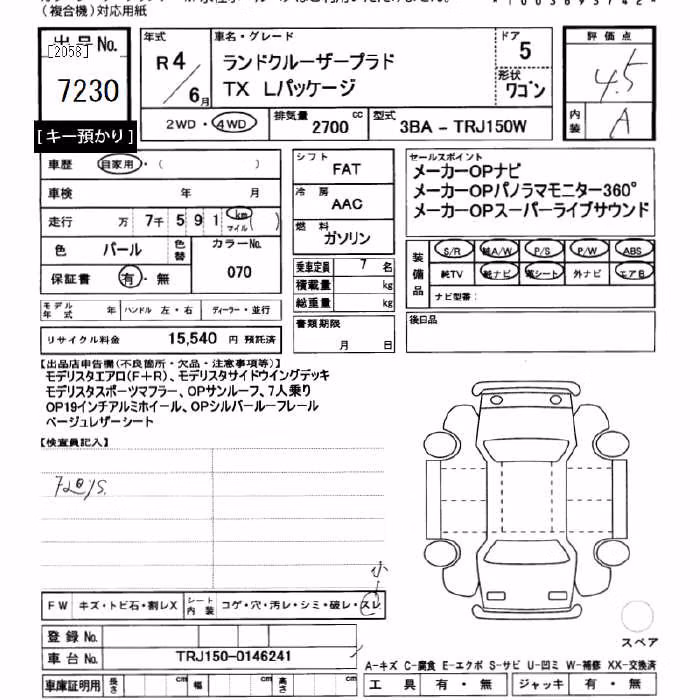 （複合機）対応用紙
出品No.
[2058]
7230
[キー預かり]
年式
R4/6月
車名・グレード
ランドクルーザープラド
TX Lパッケージ
ドア
5
形状
ワゴン
評価点
4.5
内装
A
2WD・4WD
排気量 2700 cc
型式 3BA - TRJ150W
車歴 自家用・( )
車検 年 月
走行 万 7千 5 9 1 km マイル ( )
色 パール 色替
カラーNo. 070
保証書 有・無
モデル年式 年 ハンドル 左・右 ディーラー・並行
リサイクル料金 15,540 円 預託済
シフト
FAT
冷房
AAC
燃料
ガソリン
乗車定員 7 名
積載量 kg
総重量 kg
書類期限
月 日
セールスポイント
メーカーOPナビ
メーカーOPパノラマモニター360°
メーカーOPスーパーライブサウンド
装備品
S/R 純A/W P/S P/W ABS
純TV 純ナビ 革シート 外ナビ エアB
ナビ型番：
後日品
【出品店申告欄(不良箇所・欠品・注意事項等)】
モデリスタエアロ(F+R)、モデリスタサイドウイングデッキ
モデリスタスポーツマフラー、OPサンルーフ、7人乗り
OP19インチアルミホイール、OPシルバールーフレール
ベージュレザーシート
【検査員記入】
小
FW キズ・トビ石・割レX シート内装 コゲ・穴・汚レ・シミ・破レ・スレ
登録No.
車台No. TRJ150-0146241
車庫証明用 長さ cm 幅 cm 高さ cm
スペア
A-キズ C-腐食 E-エクボ S-サビ U-凹ミ W-補修 XX-交換済
工具 有・無 ジャッキ 有・無